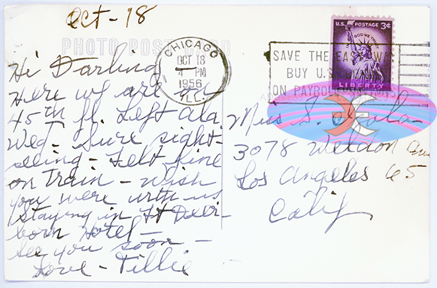 Oct-18
PHOTO POST CARD
Hi Darling
Here we are
45th fl. Left La
Wed - Sure sight-
seeing - Felt fine
on train - Wish
you were with us
Staying in Ft Dear-
born Hotel -
See you soon -
Love - Tillie
CHICAGO
OCT 18
4 PM
1956
ILL.
SAVE THE EASY WAY
BUY U.S.
ON PAYROLL
U.S. POSTAGE 3¢
LIBERTY
Miss S.
3078 Weldon Ave
Los Angeles 65
Calif